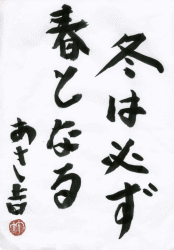 冬は必ず
春となる
あさ吉